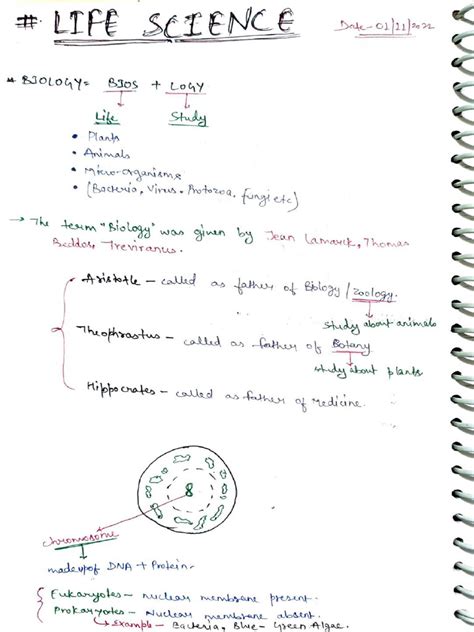 # LIFE SCIENCE
Date - 01/11/2022
* BIOLOGY = BIOS + LOGY
Life Study
• Plants
• Animals
• Micro-organisms
• (Bacteria, Virus, Protozoa, fungi etc)
→ The term "Biology" was given by Jean Lamarck, Thomas
Beddore Treviranus.
Aristotle - called as father of Biology / Zoology.
study about animals
Theophrastus - called as father of Botany
study about plants
Hippocrates - called as father of medicine.
8
chromosome
made up of DNA + Protein.
Eukaryotes - nuclear membrane present.
Prokaryotes - Nuclear membrane absent.
example - Bacteria, Blue-Green Algae.